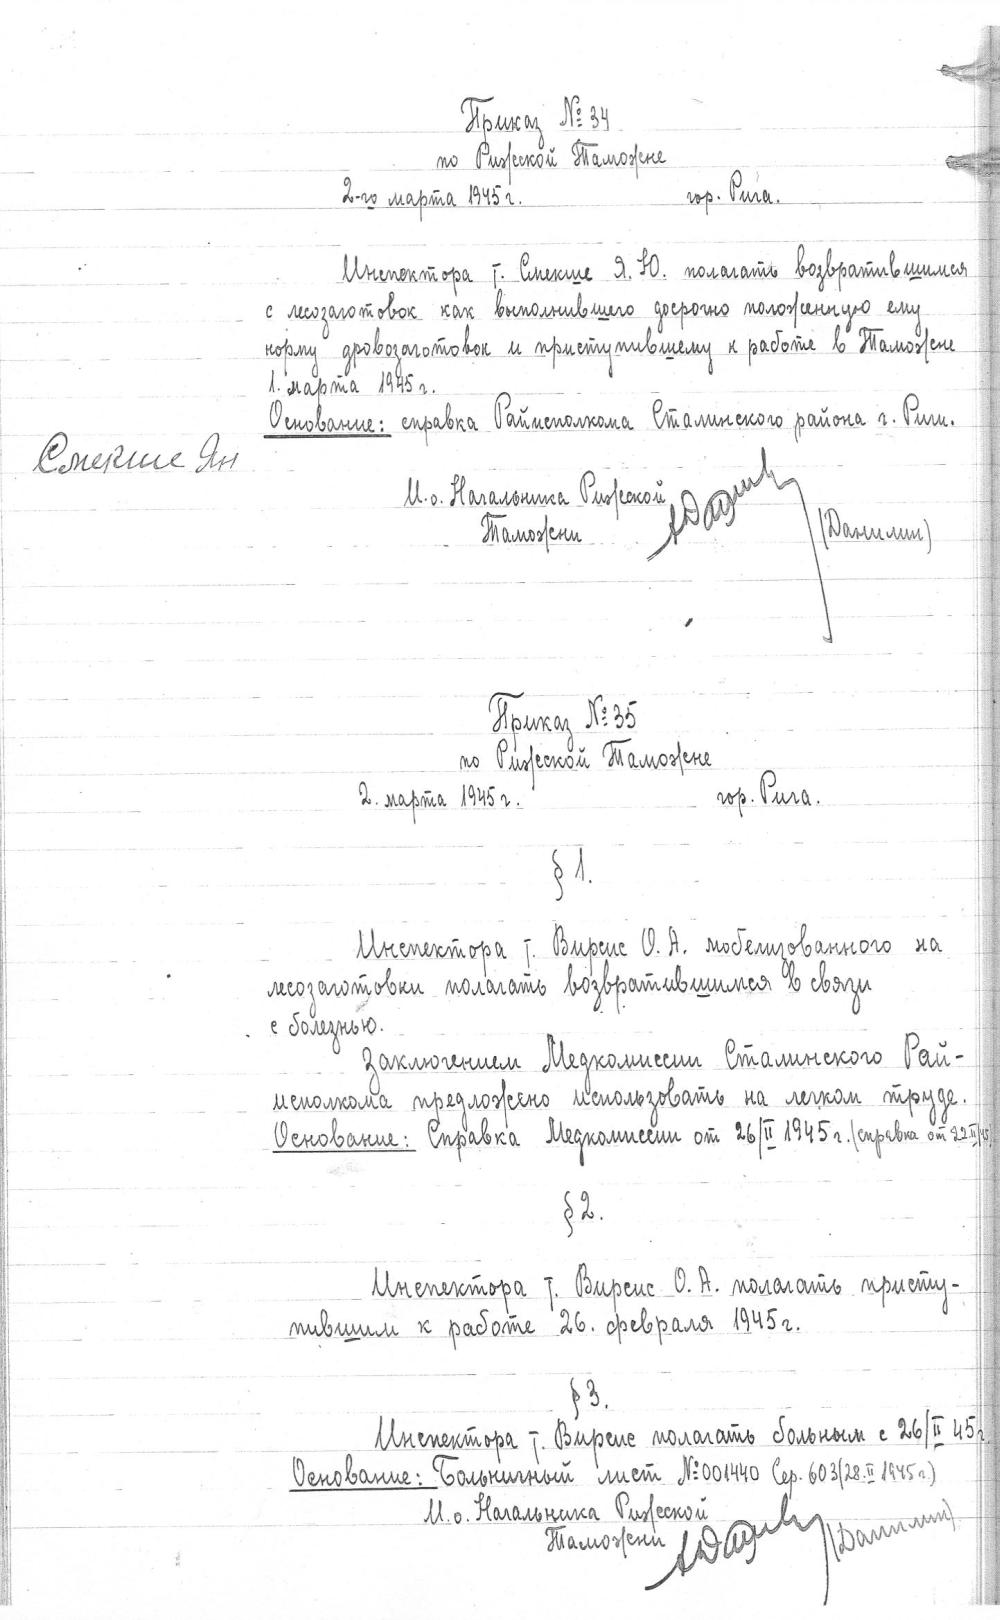 Приказ № 34
по Рижской Таможне
2-го марта 1945 г. гор. Рига.
Инспектора т. Смекше Я. Ю. полагать возвратившимся
с лесозаготовок как выполнившего досрочно положенную ему
норму дровозаготовок и приступившему к работе в Таможне
1. марта 1945 г.
Основание: справка Райисполкома Сталинского района г. Риги.
Смекше Ян
И.о. Начальника Рижской
Таможни (Данилин)
Приказ № 35
по Рижской Таможне
2. марта 1945 г. гор. Рига.
§ 1.
Инспектора т. Вирсис О. А. мобелизованного на
лесозаготовки полагать возвратившимся в связи
с болезнью.
Заключением Медкомиссии Сталинского Рай-
исполкома предложено использовать на легком труде.
Основание: Справка Медкомиссии от 26/II 1945 г. (справка от 22.II/45
§ 2.
Инспектора т. Вирсис О. А. полагать присту-
пившим к работе 26. февраля 1945 г.
§ 3.
Инспектора т. Вирсис полагать больным с 26/II 45 г.
Основание: Больничный лист № 001440 Сер. 603 (28.II 1945 г.)
И.о. Начальника Рижской
Таможни (Данилин)